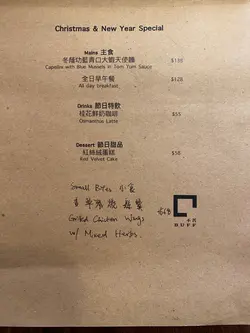 Christmas & New Year Special
Mains 主食
冬蔭功藍青口大蝦天使麵 $138
Capellini with Blue Mussels in Tom Yum Sauce
全日早午餐 $128
All day breakfast
Drinks 節日特飲
桂花鮮奶咖啡 $55
Osmanthus Latte
Dessert 節日甜品
紅絲絨蛋糕 $58
Red Velvet Cake
Small Bites 小食
香草燒雞翼 $68
Grilled Chicken Wings
w/ Mixed Herbs.
BUFF